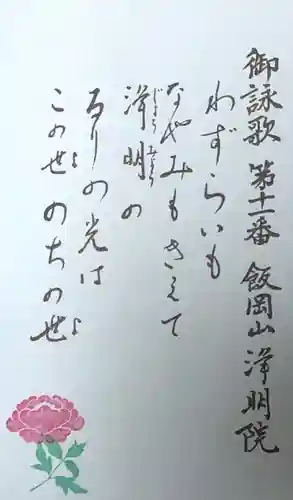 御詠歌 第十一番 飯岡山 浄明院
わずらいも
なやみもきえて
浄明の
るりの光は
この世のちの世
じょう みょう
よ
よ